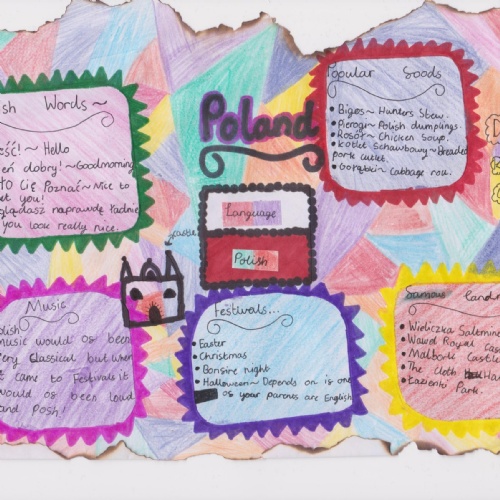 Poland
ish Words~
eść! ~ Hello
eń dobry! ~ Goodmorning
ło cię Poznać ~ Nice to
et you!
glądasz naprawdę ładnie
you look really nice.
Popular foods
• Bigos ~ Hunters Stew.
• Pierogi ~ Polish dumplings.
• Rosół ~ Chicken Soup.
• kotlet Schawbowy ~ Breaded
pork cutlet.
• Gołąbki ~ Cabbage roll.
Language
Polish
castle
Music
olish
music would of been
ery Classical but when
t came to Festivals it
would of been loud
and Posh!
Festivals...
• Easter
• Christmas
• Bonfire night
• Halloween ~ Depends on is one
of your parents are English
famous land
• Wieliczka Saltmin
• Wawel Royal cas
• Malbork Castle
• The Cloth Ha
• Łazienki Park.